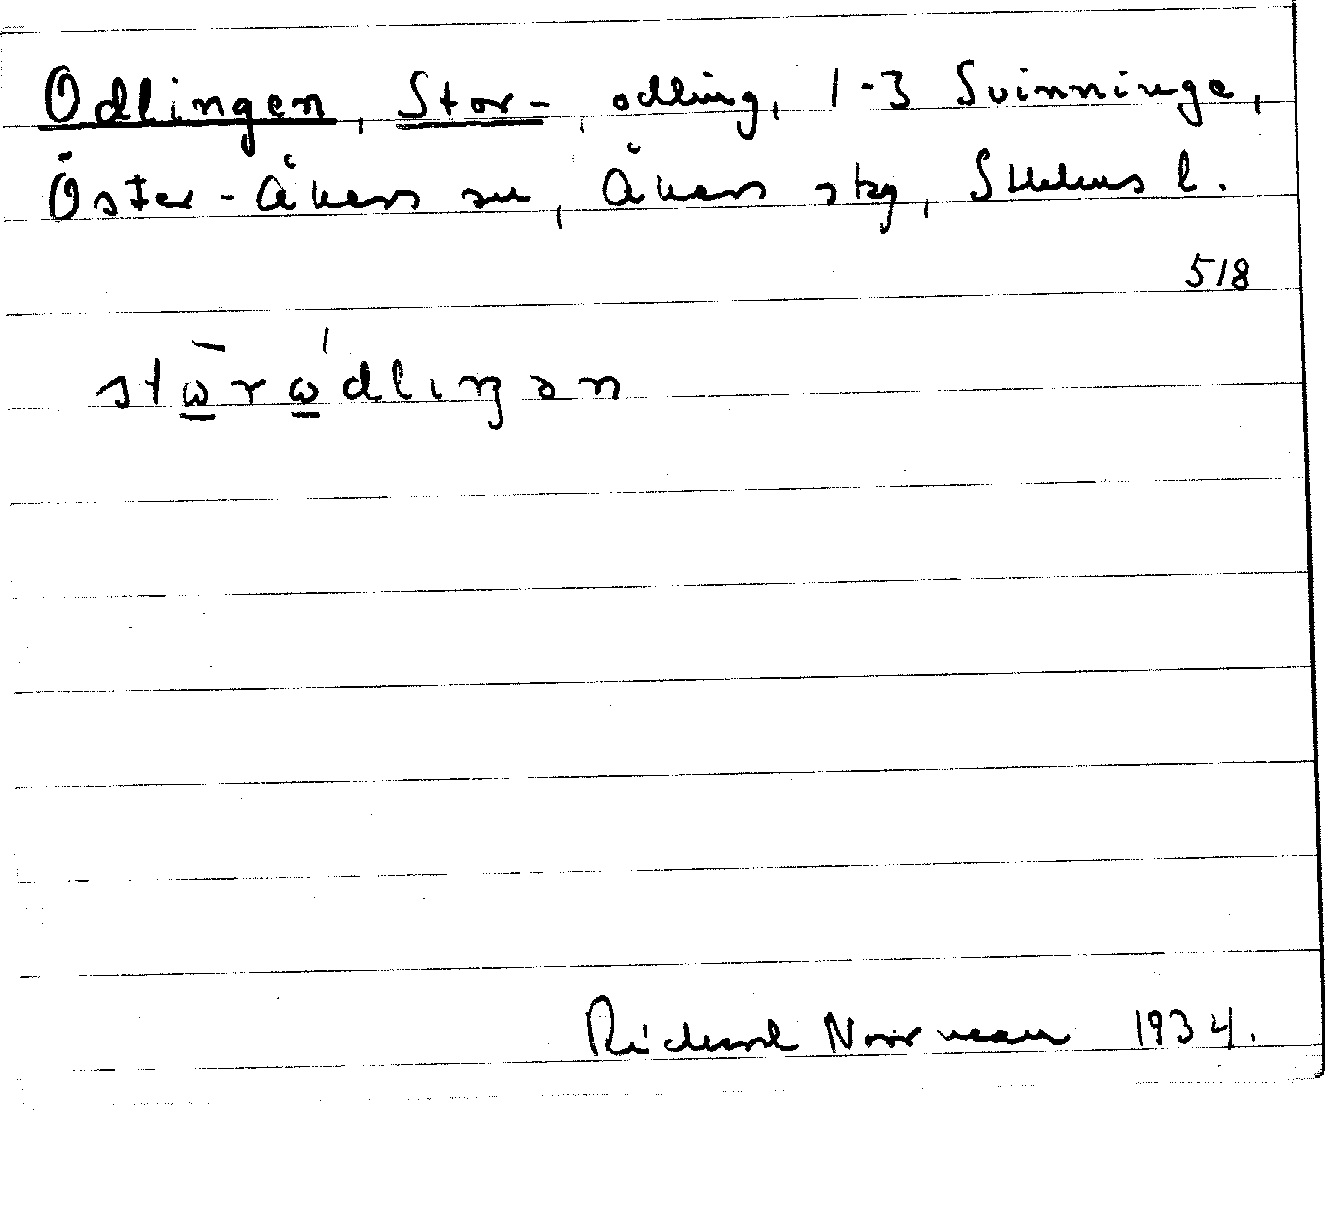 Odlingen, Stor-, odling, 1-3 Svinninge,
Öster-Åkers sn, Åkers skg, Sthlms l.
518
stω̄rώdliŋən
Richard Norrman 1934.